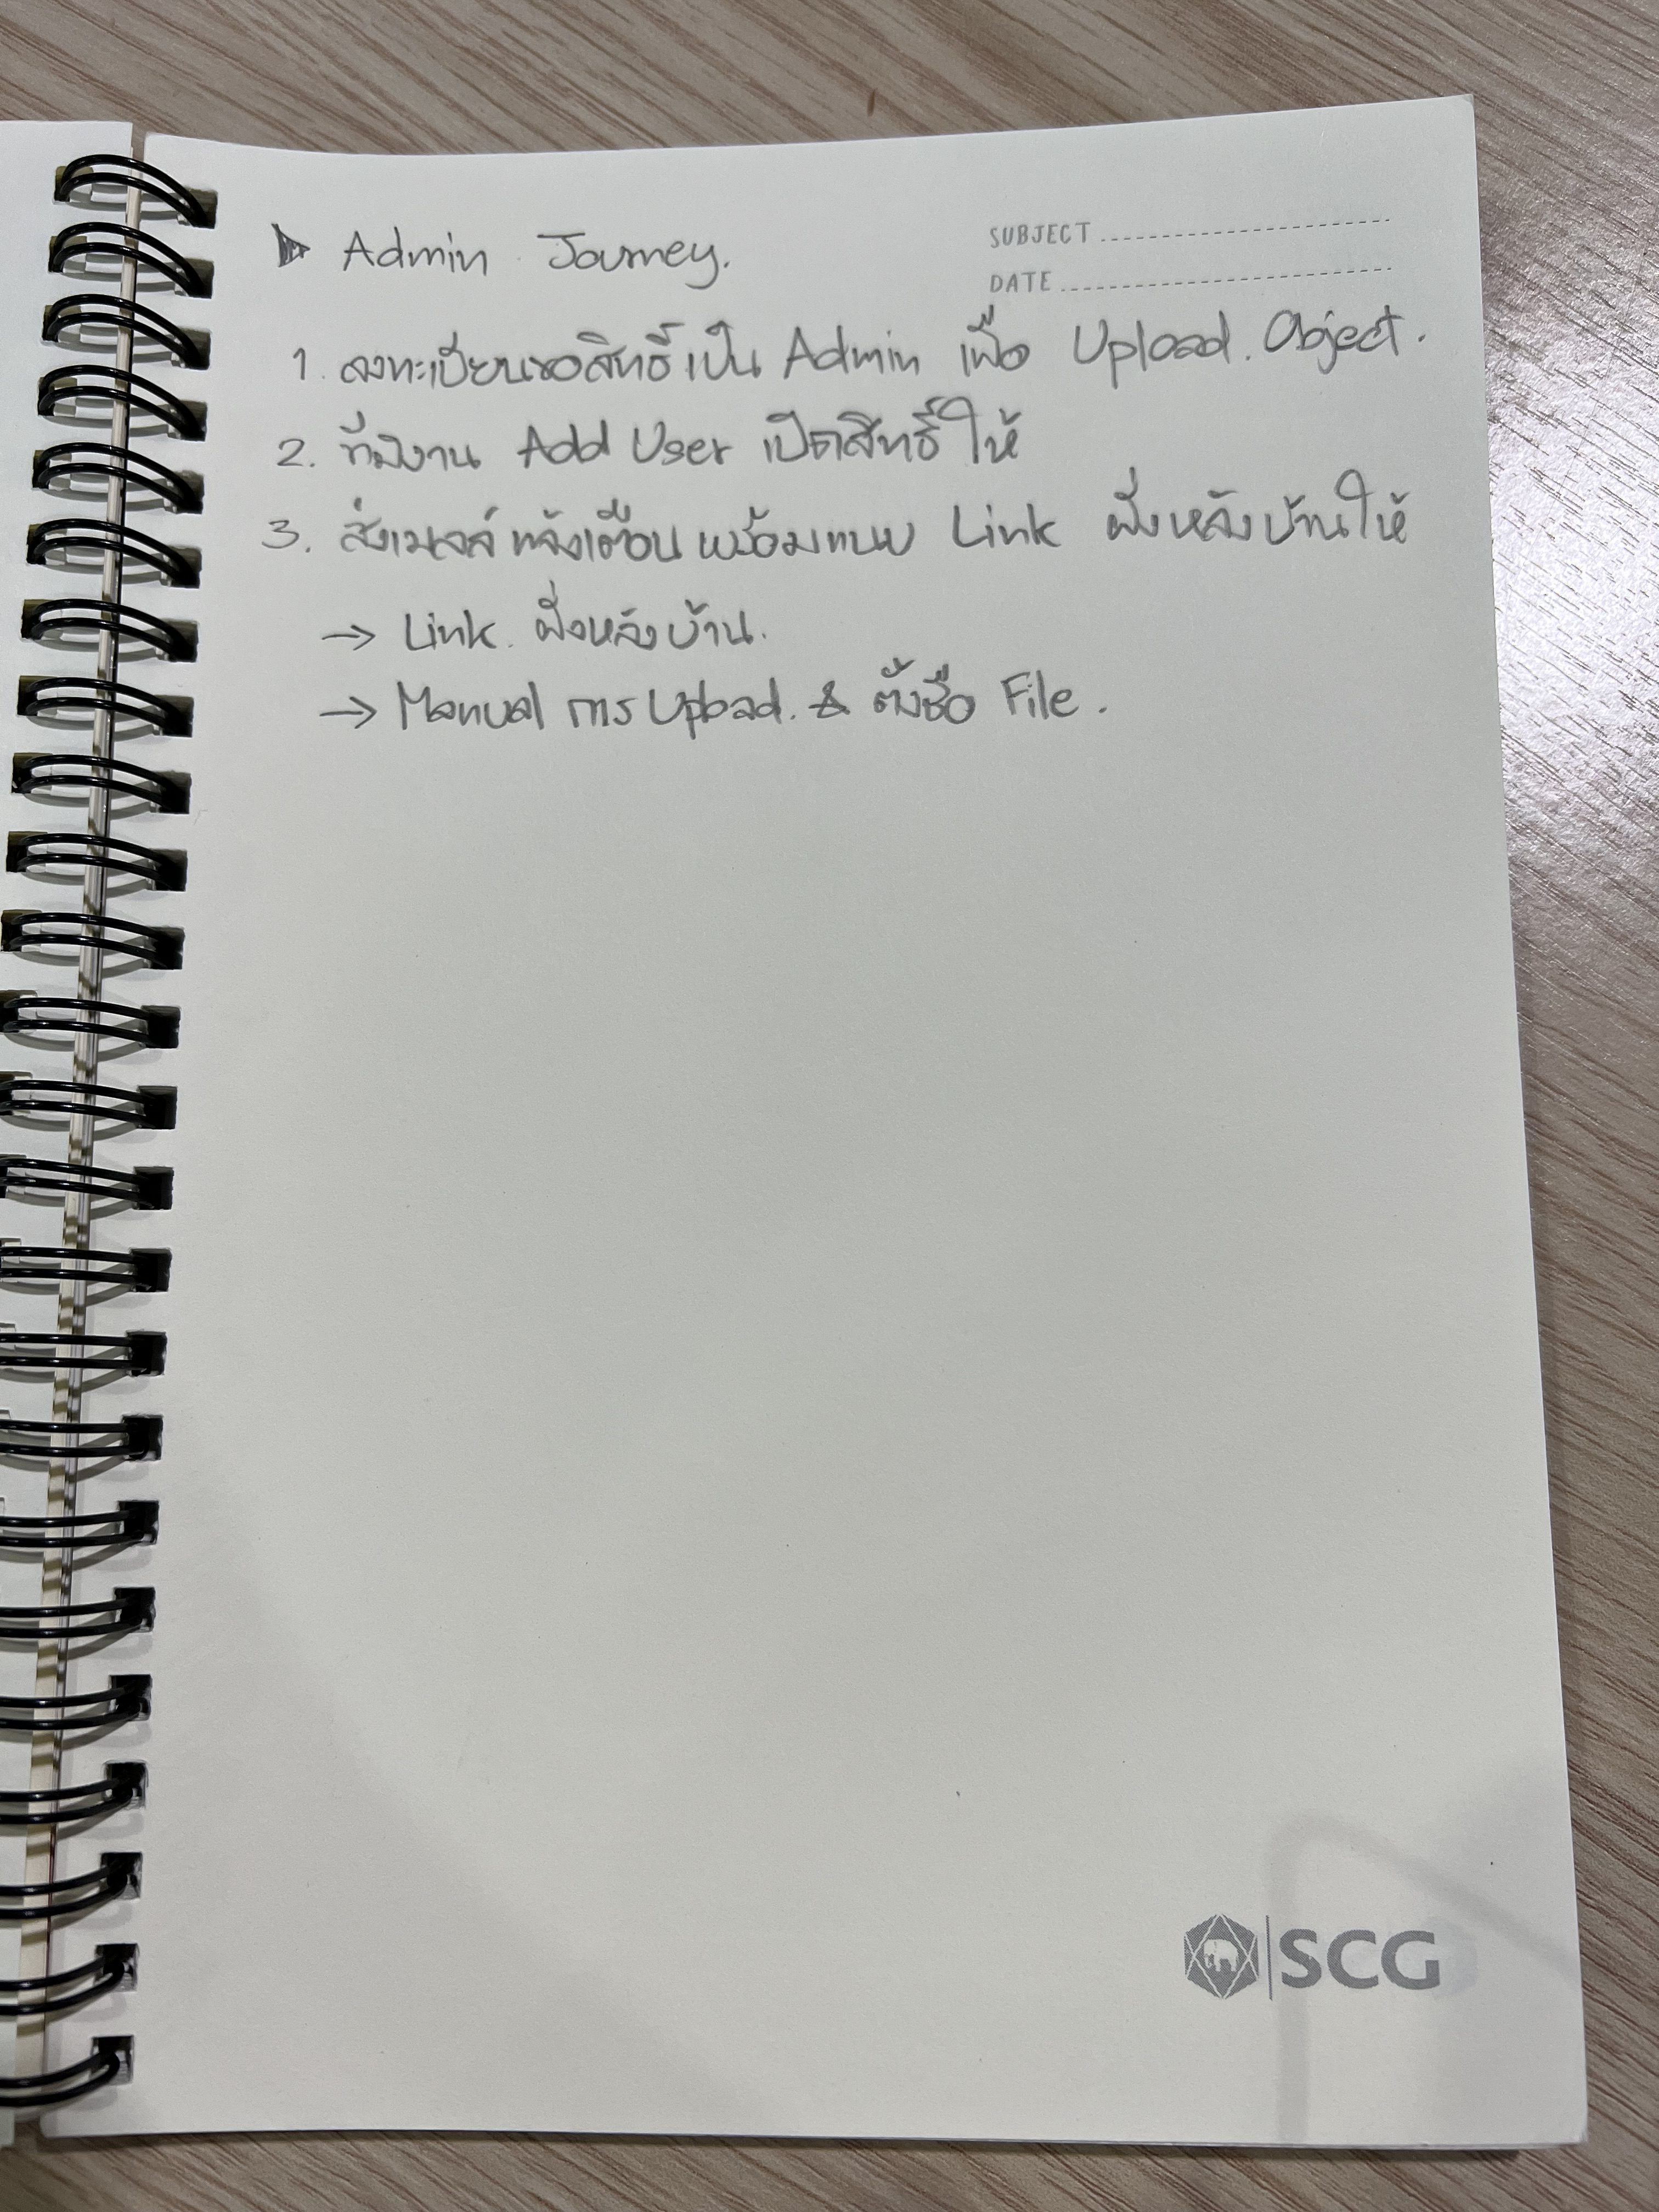 Admin Journey.
SUBJECT
DATE
1. ลงทะเบียนขอสิทธิ์เป็น Admin เพื่อ Upload. Object.
2. ทีมงาน Add User เปิดสิทธิ์ให้
3. ส่งเมลล์ แจ้งเตือน พร้อมแนบ Link ฝั่งหลังบ้านให้
→ Link. ฝั่งหลังบ้าน.
→ Manual การ Upload. & ตั้งชื่อ File.
SCG